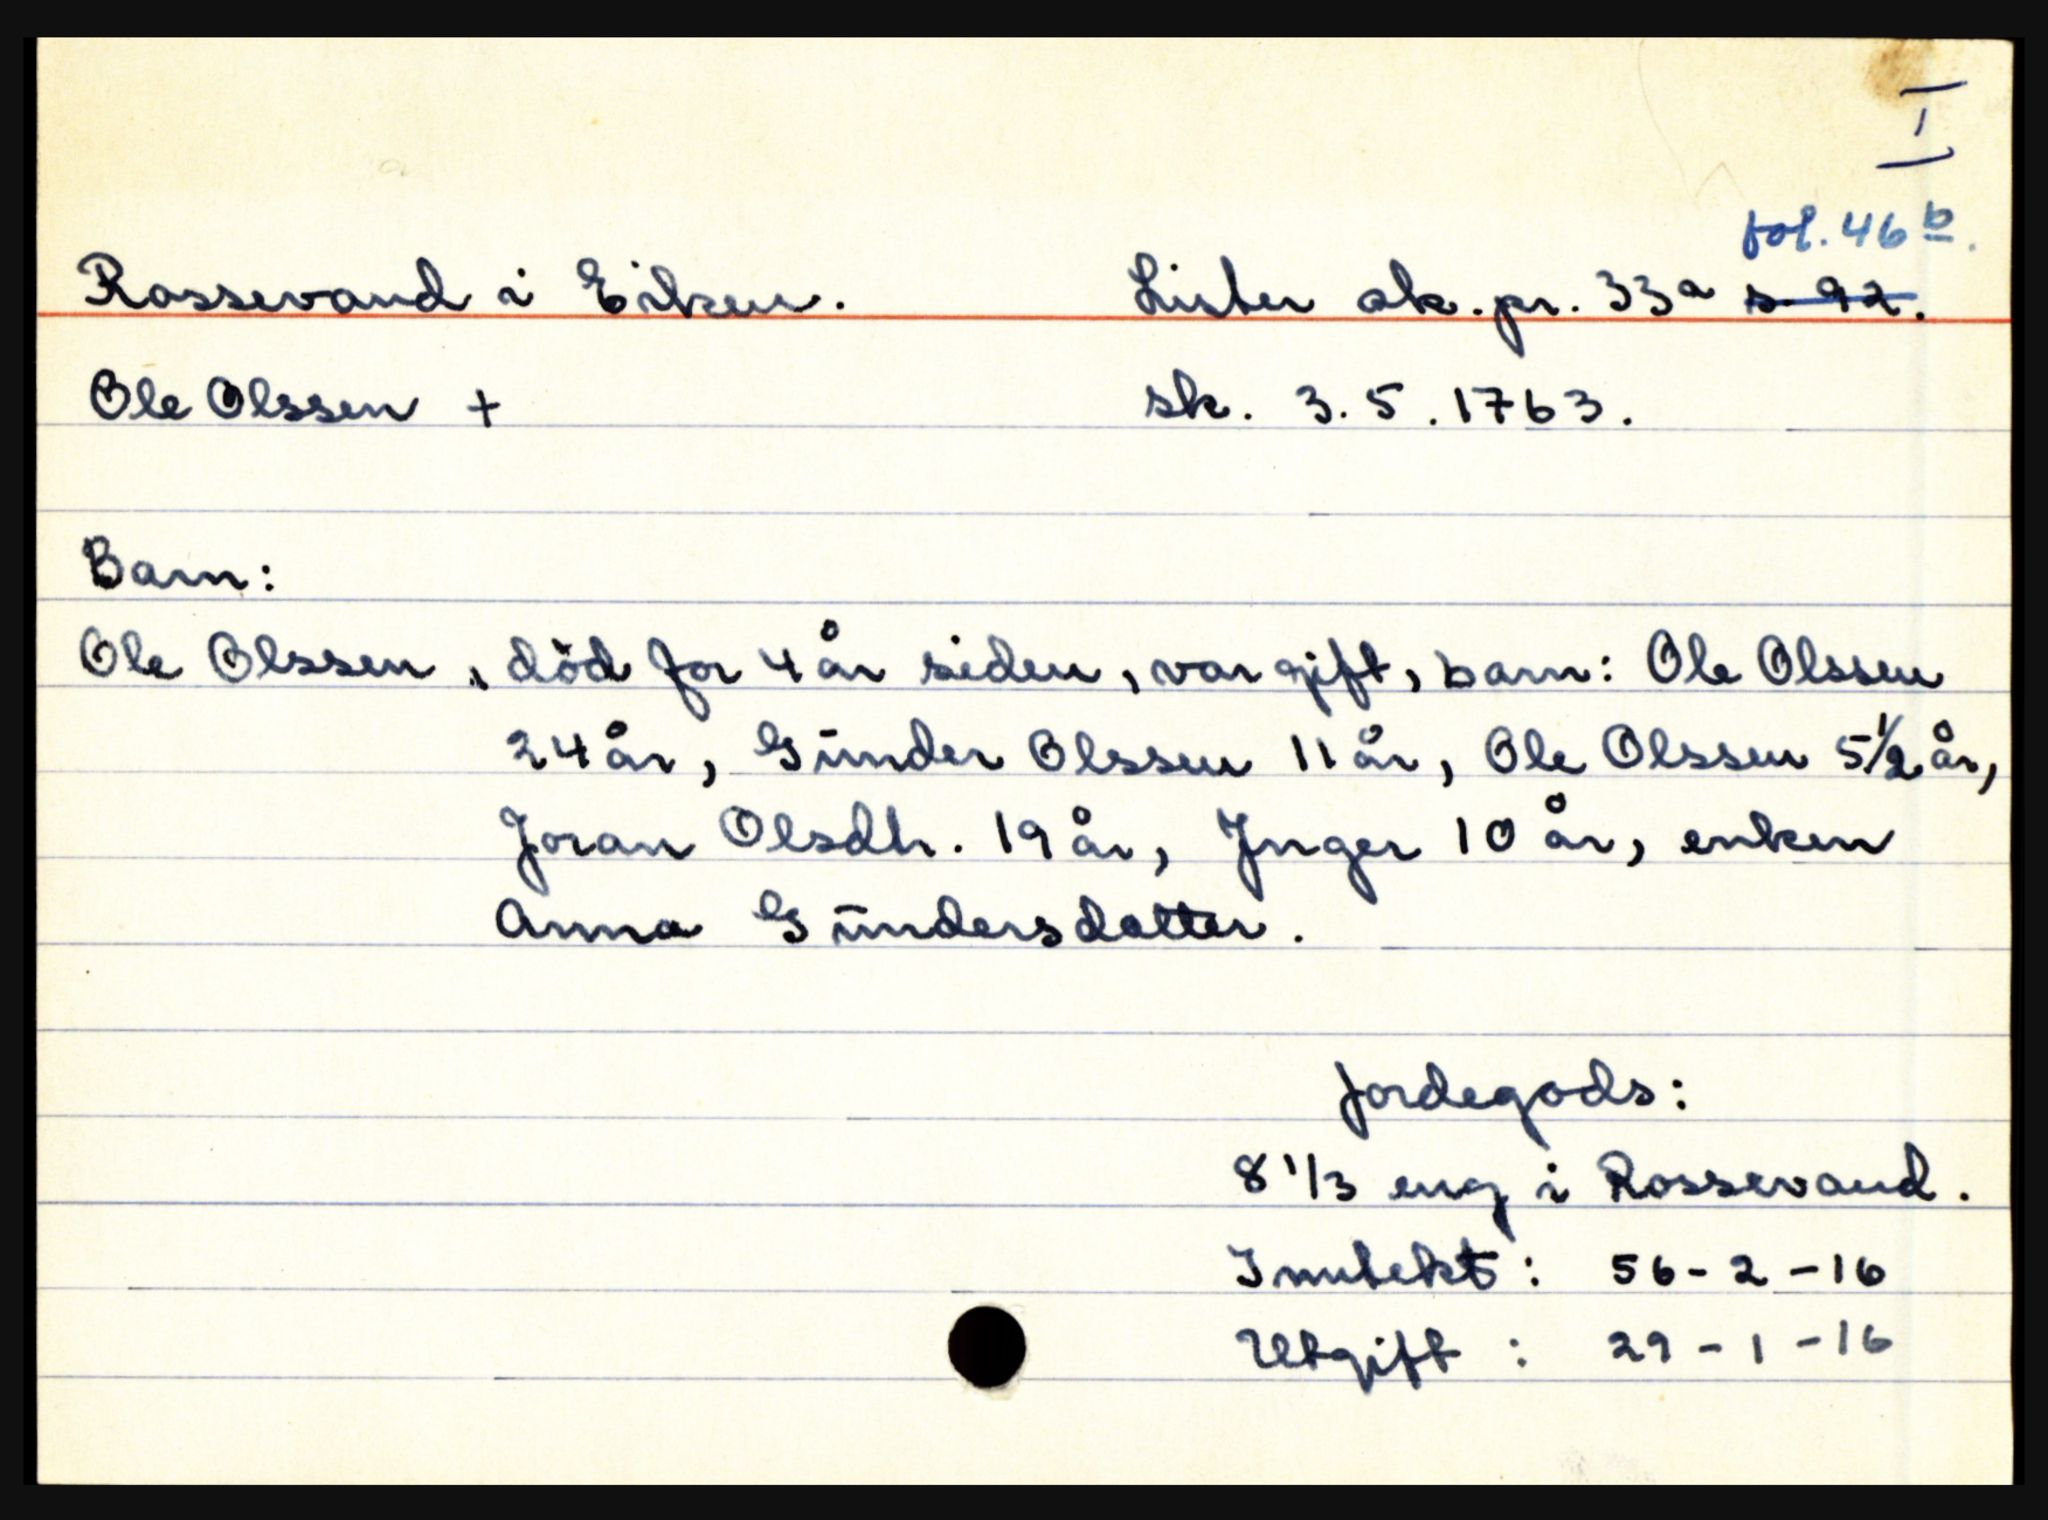 I
fol. 46 b.
Rossevand i Eiken. Lister sk. pr. 33a s. 92.
Ole Olssen + sk. 3.5.1763.
Barn:
Ole Olssen, död for 4 år siden, var gift, barn: Ole Olssen
24 år, Günder Olssen 11 år, Ole Olssen 5 1/2 år,
Joran Olsdtr. 19 år, Ynger 10 år, enken
Anna Gündersdatter.
Jordegods:
8 1/3 eng i Rossevand.
Inntekt: 56-2-16
Utgift: 29-1-16